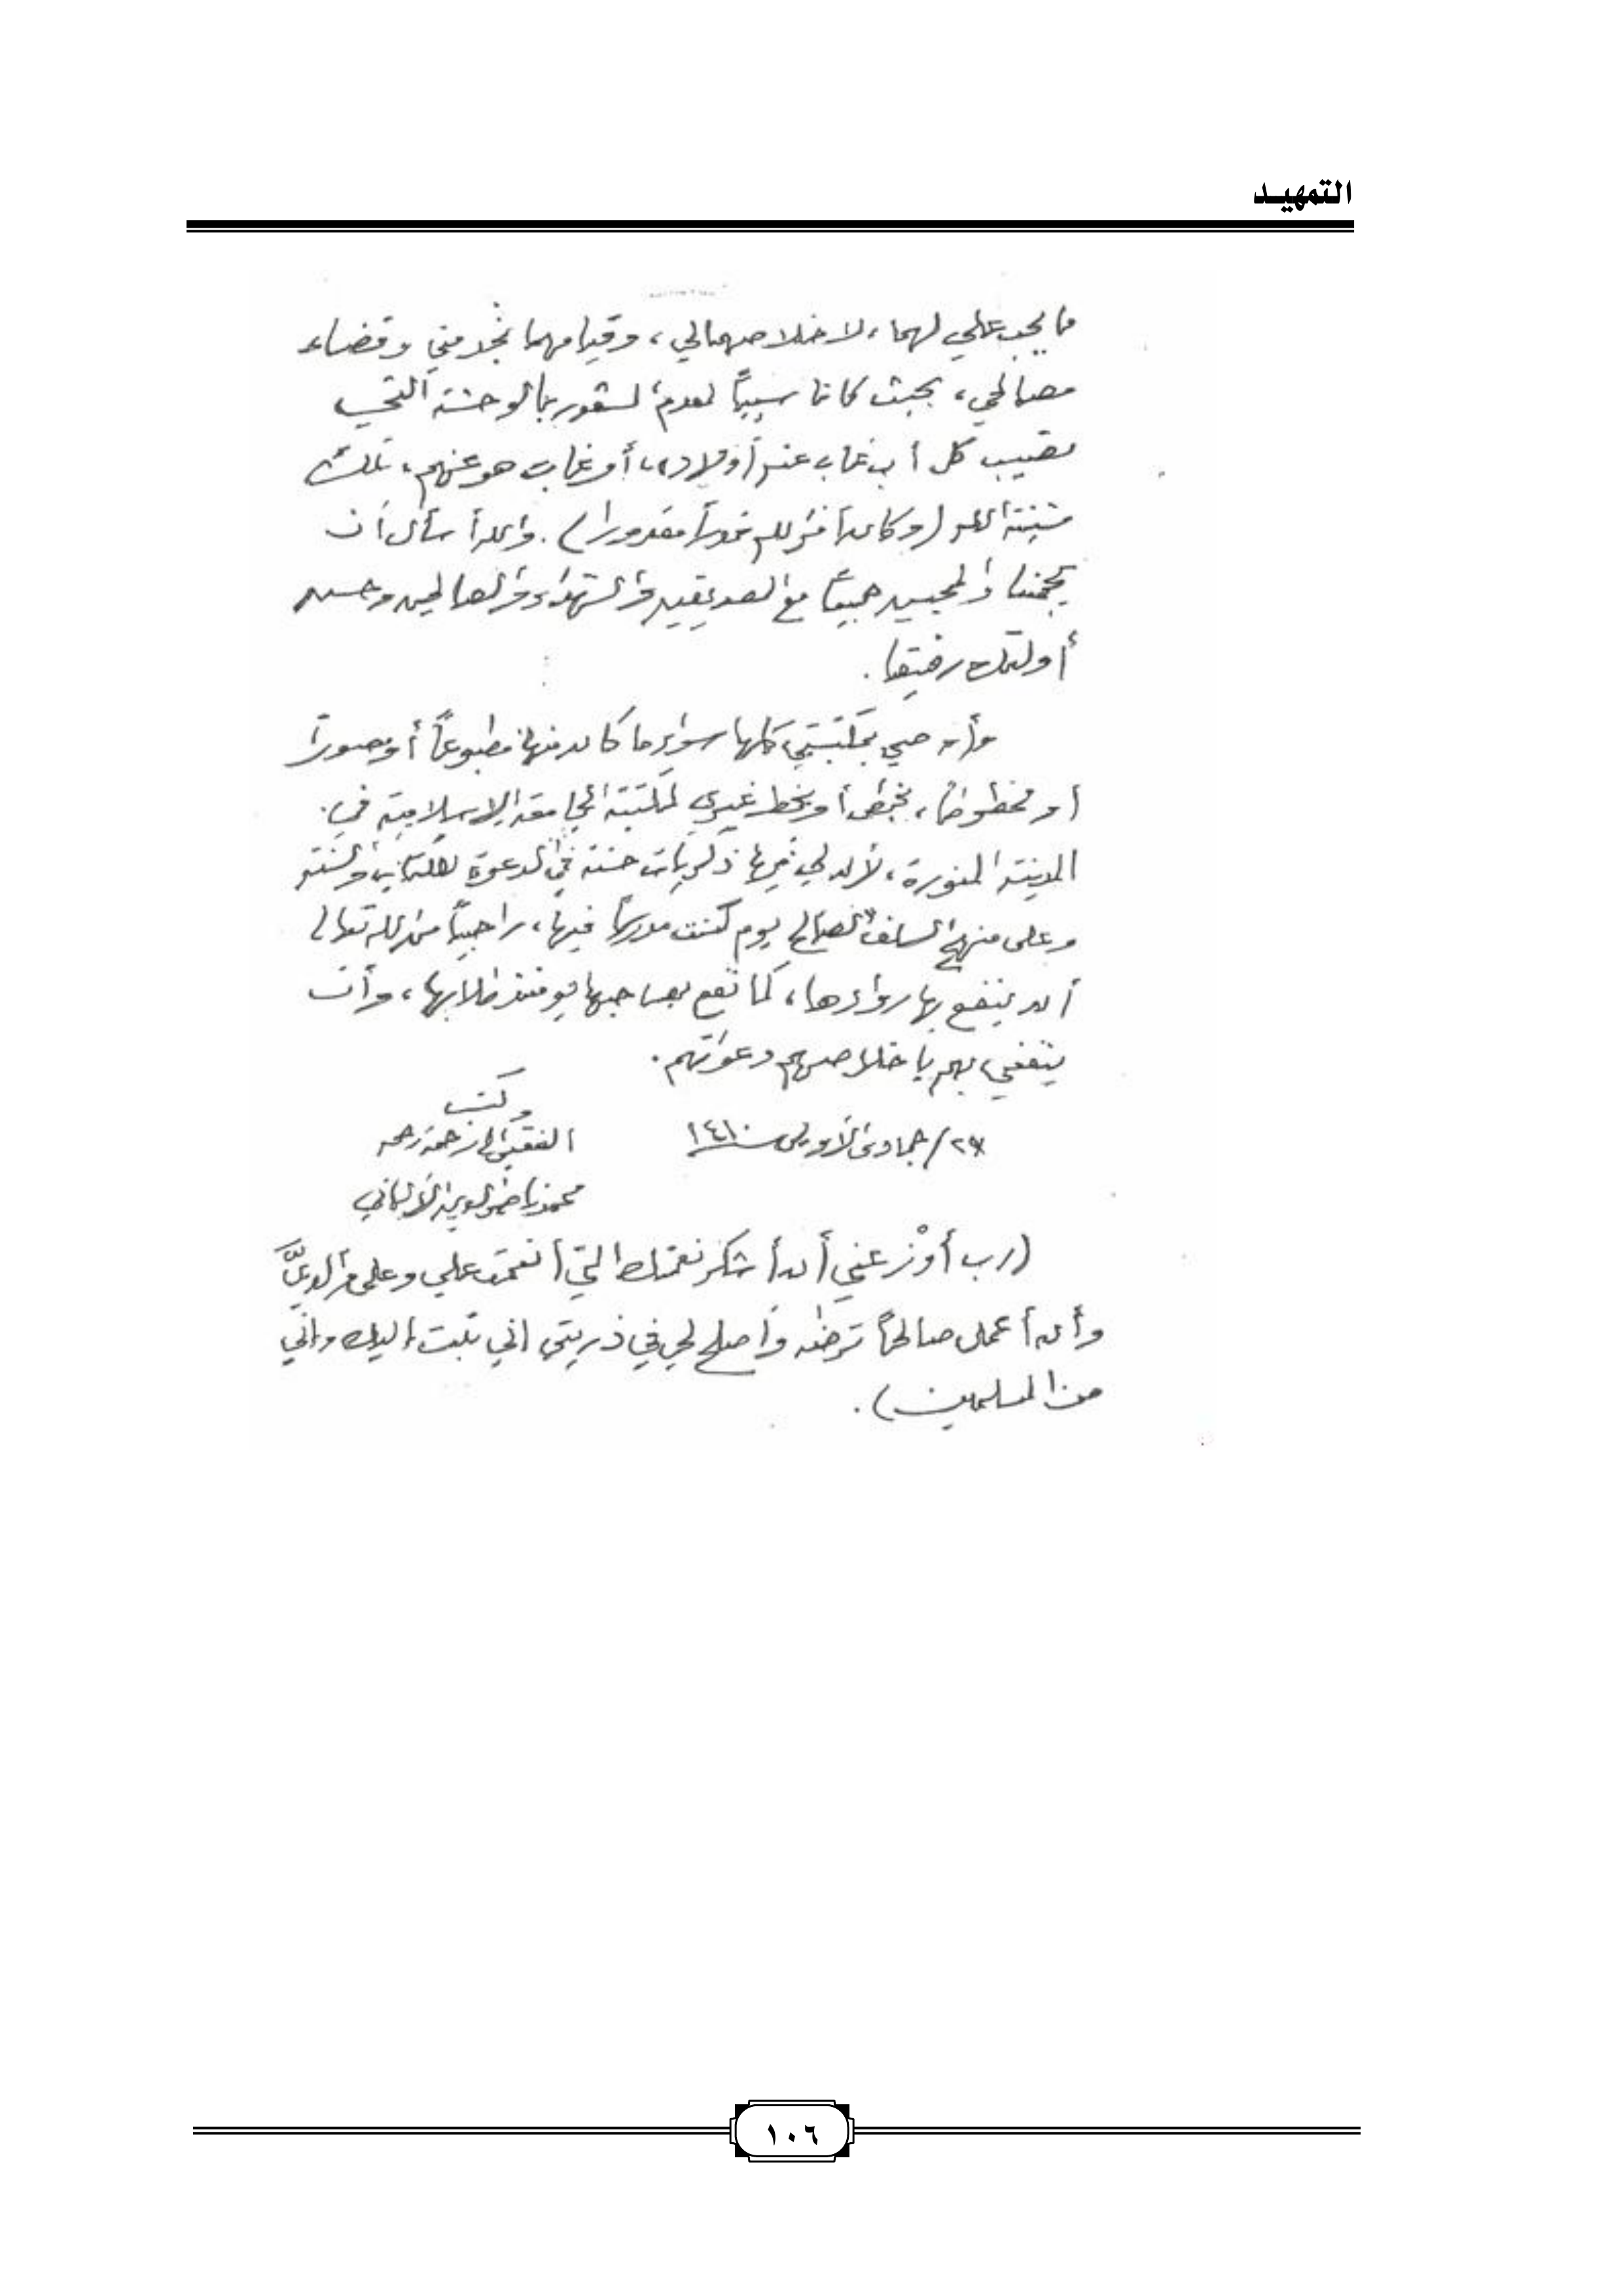 التمهيد
ما يجب علي لهما، لاخلاصهما لي، وقيامهما بخدمتي وقضاء
مصالحي، بحيث كانا سبباً لعدم الشعور بالوحشة التي
تصيب كل أب غاب عنه أولاده، أو غاب هو عنهم، تلك
مشيئة الله (وكان أمر الله قدراً مقدورا). والله أسأل أن
يجمعنا والمحبين جميعاً مع الصديقين والشهداء والصالحين وحسن
أولئك رفيقا.
وأوصي بمكتبتي كلها سواء ما كان منها مطبوعاً أو مصوراً
أو مخطوطاً، بخطي أو بخط غيري لمكتبة الجامعة الإسلامية في
المدينة المنورة، لأن لي فيها ذكريات حسنة في الدعوة للكتاب والسنة
وعلى منهج السلف الصالح يوم كنت مدرساً فيها، راجياً من الله تعالى
أن ينفع بها روادها، كما نفع بصاحبها يومئذ طلابها، وأن
ينفعني بهم بإخلاصهم ودعواتهم.
وكتب
٢٧/جمادى الأولى ١٤١٠ الفقير إلى رحمة ربه
محمد ناصر الدين الألباني
(رب أوزعني أن أشكر نعمتك التي أنعمت علي وعلى والديَّ
وأن أعمل صالحاً ترضاه وأصلح لي في ذريتي اني تبت إليك وإني
من المسلمين).
١٠٦